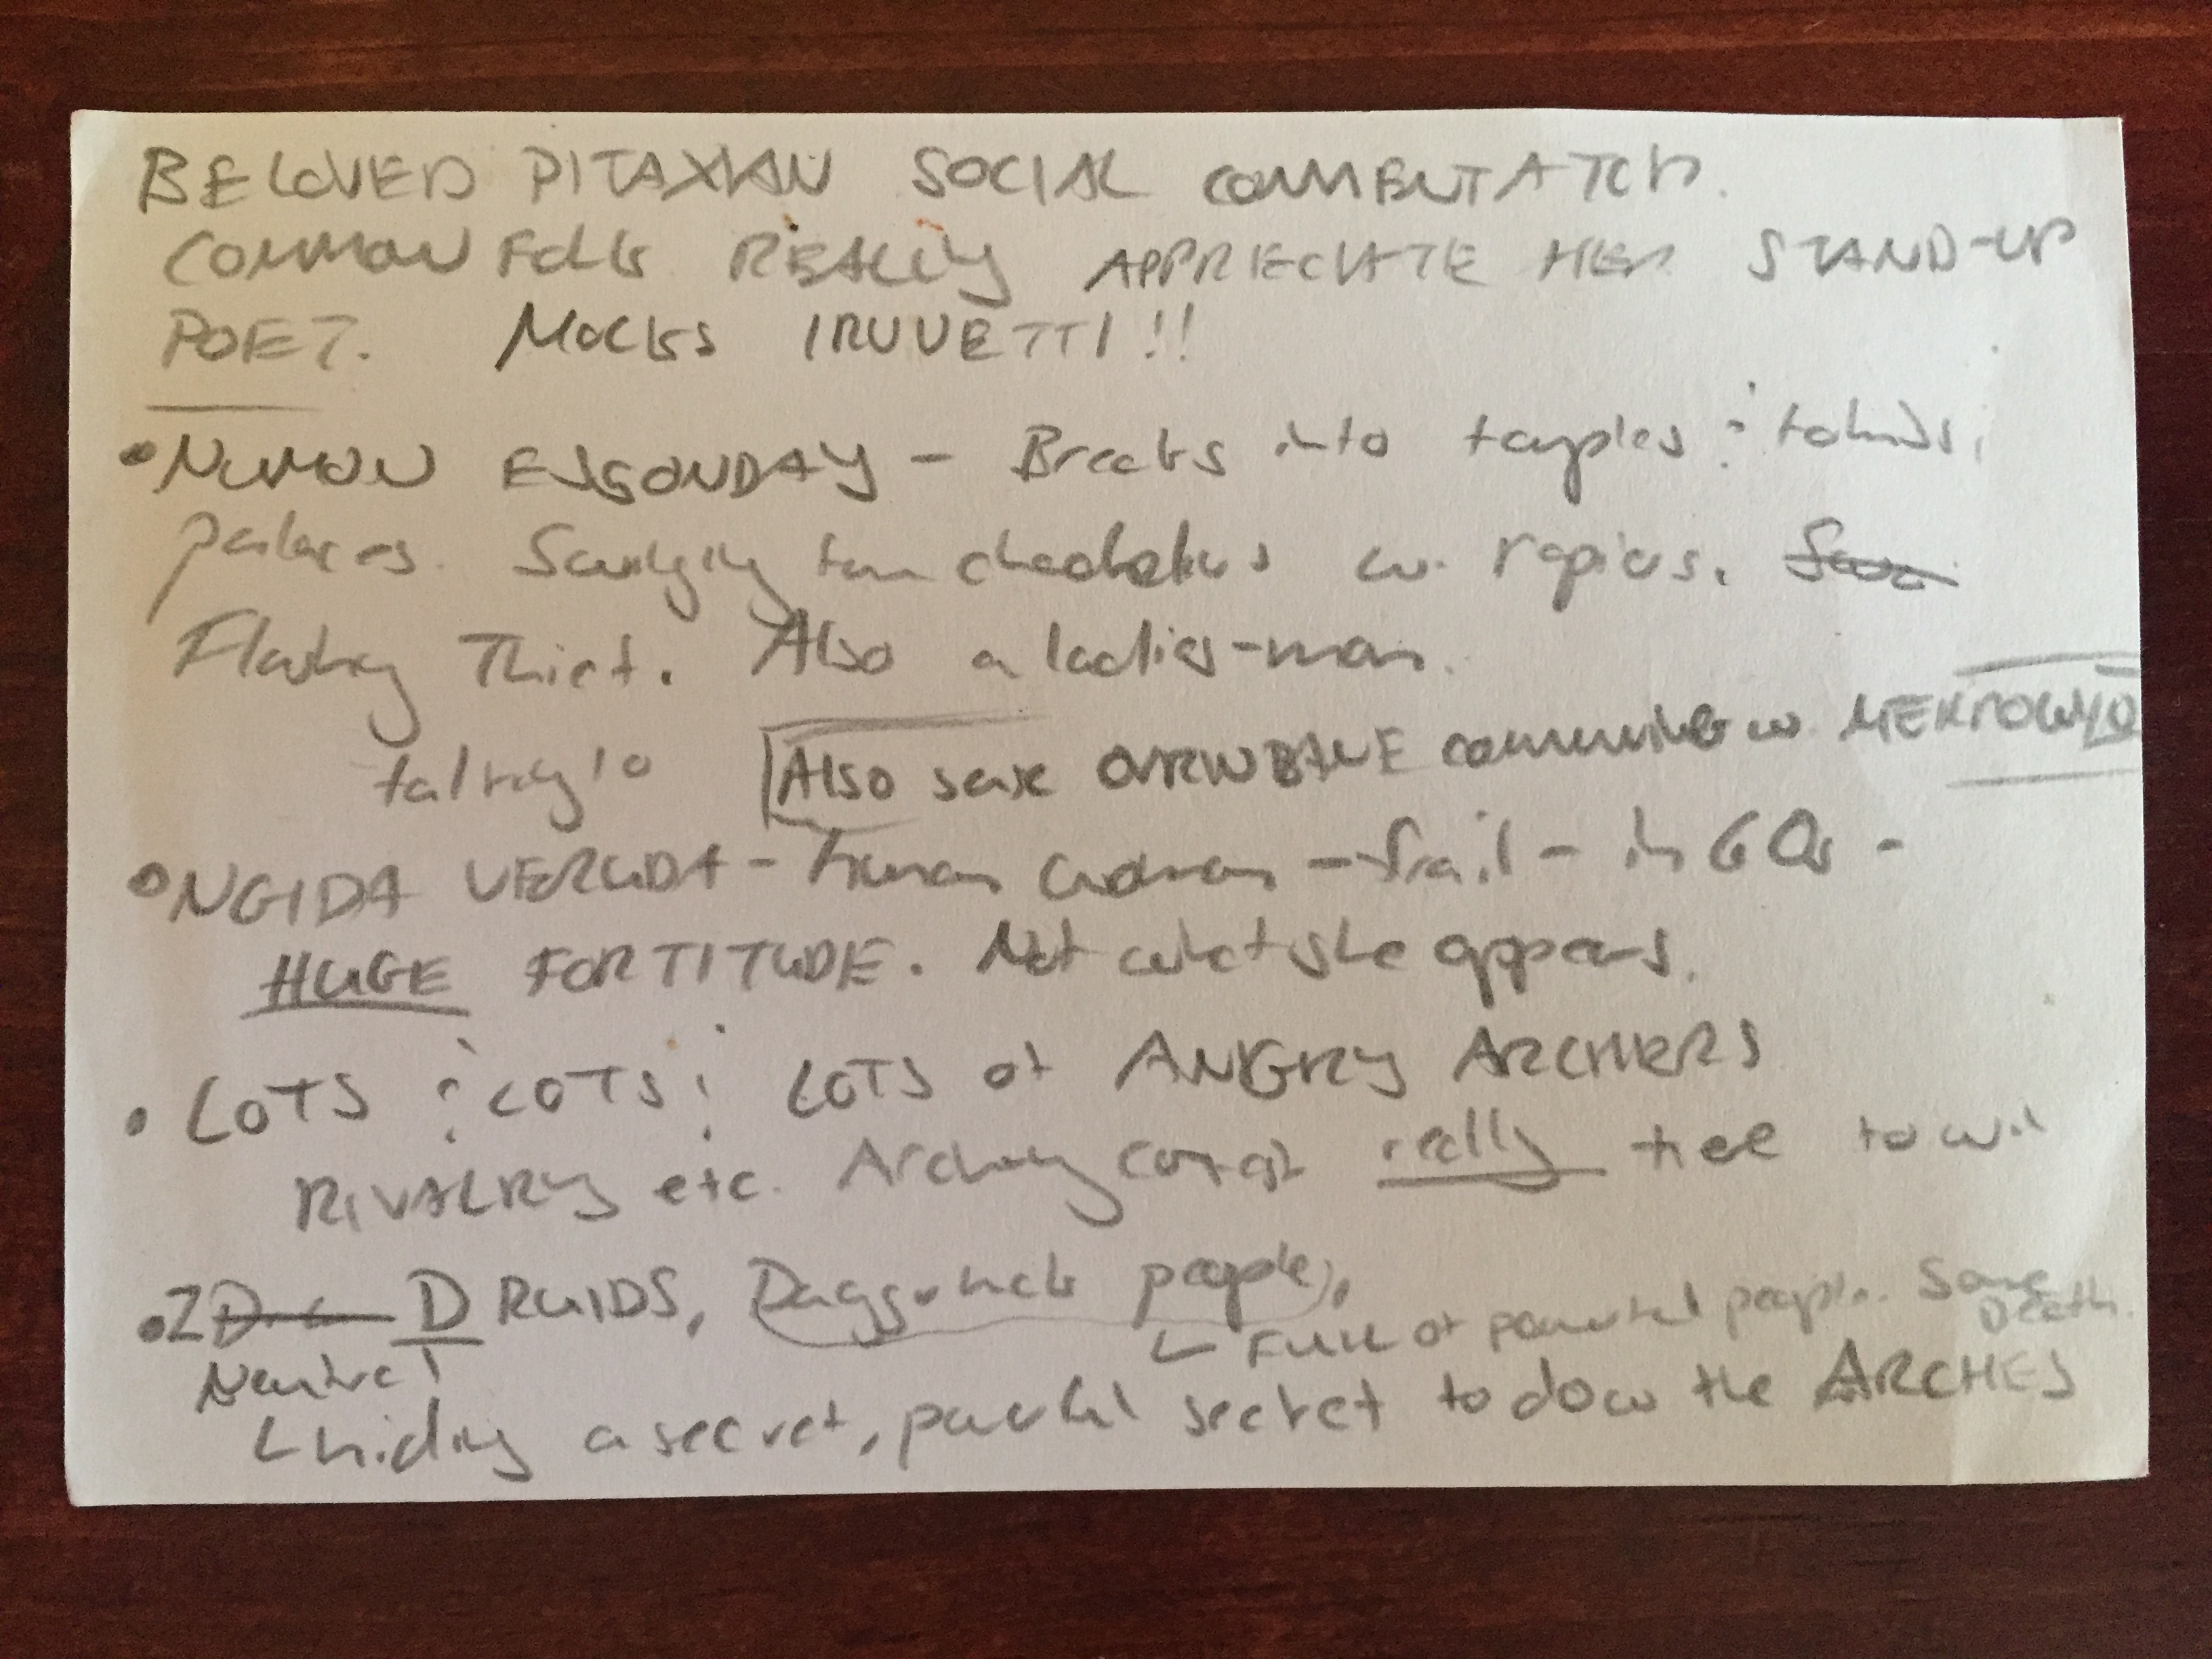 BELOVED PITAXIAN SOCIAL COMMENTATOR.
COMMON FOLK REALLY APPRECIATE HER STAND-UP
POET. MOCKS IRUVETTI!!
• NUMON ESGONDAY - Breaks into temples & tombs,
palaces. Swinging from chandeliers w. rapiers.
Flashy Thief. Also a ladies-man.
Also seen OVRWBANE communing w.
• NGIDA VERUDA - human woman - frail - in 60s -
HUGE FORTITUDE. Not what she appears.
• LOTS & LOTS & LOTS of ANGRY ARCHERS
RIVALRY etc. Archery contest really tied to
• 2 DRUIDS, Daggermark people,
Neutral
FULL of powerful people. Some Death.
hiding a secret, powerful secret to do w the ARCHES